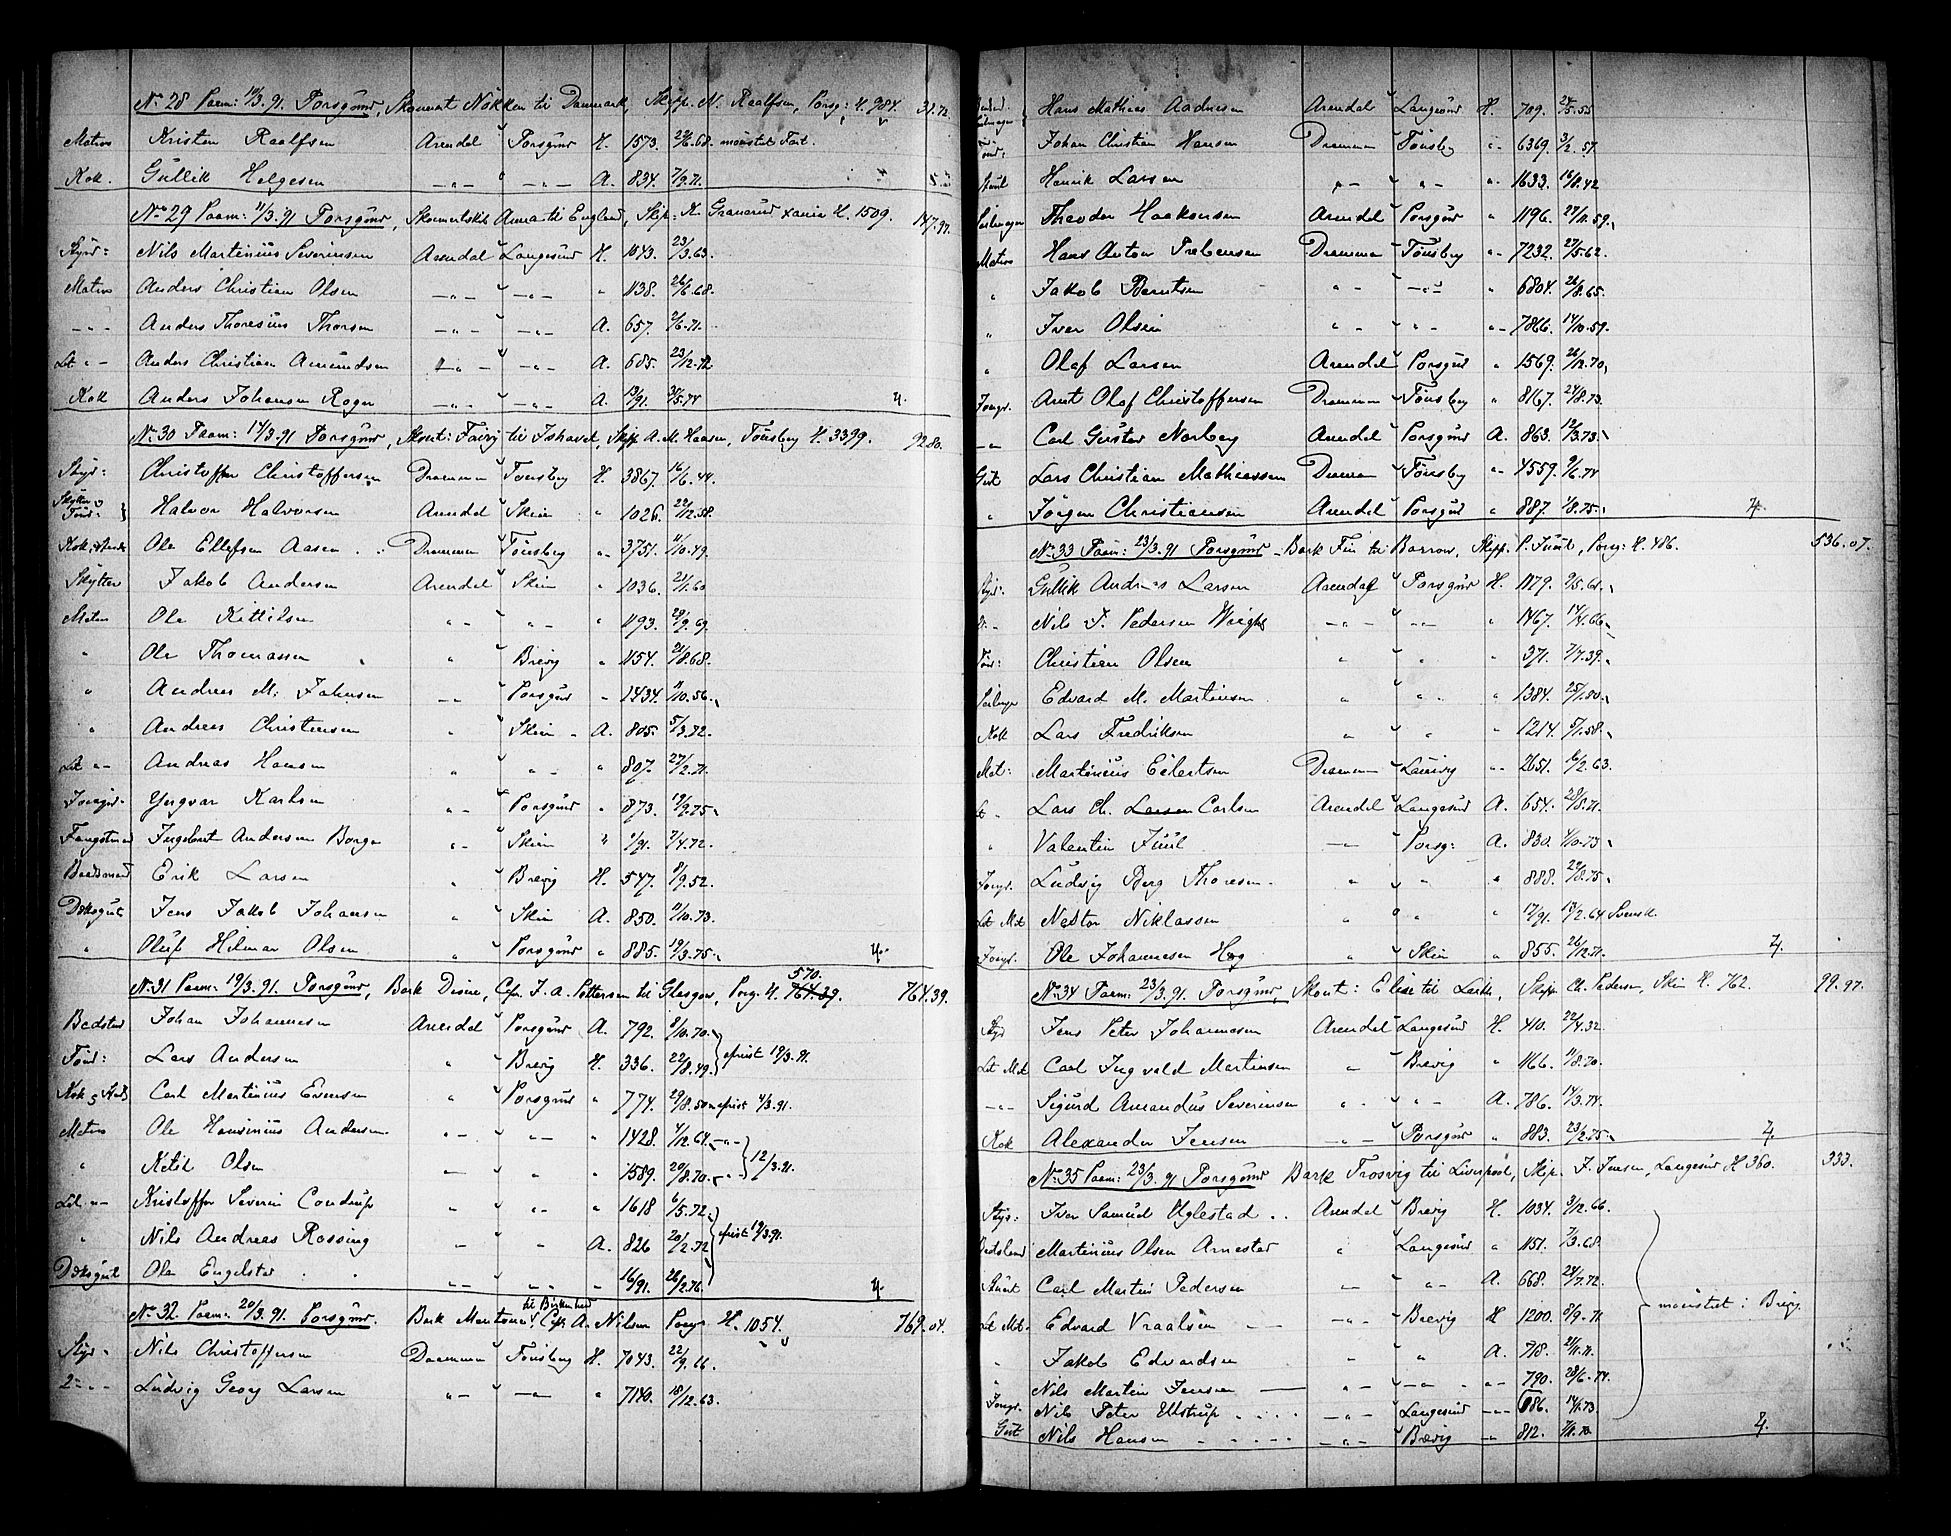 No 28 Paam: 10/3.91. Porsgund, Skonnert Nökken til Danmark, Skip. N. Raalfsen, Porsg: H. 984. 31.72
Matros Kristen Raalfsen Arendal Porsgund H. 1573. mönstret
Kok. Gullik Helgesen —„— —„— A. 834. 7/9.71.
No 29 Paam: 11/3.91 Porsgund, Skonnertskib Anna til England, Skip: H. 1509. 147.97.
Styrd: Nils Martinius Severinsen Arendal Langesund H. 1043. 23/3.63.
Matros Anders Christian Olsen —„— —„— „ 1138. 26/6.68.
—„— Anders Thoresius Thorsen —„— —„— A. 657. 2/6.71.
Let „— Anders Christian Amundsen —„— —„— A. 685. 23/12.72
Kok Anders Johansen Roger —„— —„— A. 13/91. 30/5.74 4.
No 30 Paam: 14/3.91 Porsgund, Skont: til Ishavet, Skip A. M. Haasen, Tönsberg H. 3399. 92.80.
Styrd: Christoffer Christoffersen Drammen Tönsberg H. 3867. 16/6.44.
Skytter & Tönd: Halvor Halvorsen Arendal Skien „ 1026. 22/12.58.
Kok & Ole Ellefsen Aasen Drammen Tönsberg „ 3751. 11/10.49.
Skytter Jakob Andersen Arendal Skien „ 1036. 21/1.60
Matros Ole Kittilsen „ „ „ 1193. 29/9.69.
„ Ole Thomassen „ Brevig „ 1154. 21/8.68.
„ Andreas M: Johnsen „ Porsgund „ 1434. 11/10.56.
„ Andreas Christensen „ Skien A. 805. 5/3.72.
Let „— Andreas Hansen „ „ „ 807. 27/2.71.
Jomgd. Yngvar Karlsen „ Porsgund „ 873. 19/9.75
Fangstmand Ingebret Andersen Borge „ Skien „ 1/91. 7/4.72.
Baadsmand Erik Larsen „ Brevig H. 547. 8/9.52.
Dæksgut Jens Jakob Johansen „ Skien A. 850. 11/10.73.
„ Oluf Hilmar Olsen „ Porsgund „ 885. 19/3.75. 4.
No 31 Paam: 19/3.91. Porsgund, Bark Desire, Cpt. J. A. Pettersen til Glasgow, Porsg. H. 764.39. 570. 764.39.
Bodsted Johan Johannesen Arendal Porsgund A. 792. 8/10.70.
Tönd: Lars Andersen „ Brevig H. 336. 22/8.49. afreist 19/3.91.
Kok & Carl Martinius Evensen „ Porsgund „ 774. 29/8.50 afreist 4/3.91.
Matros Ole Hansinius Andersen „ „ „ 1428. 4/12.64. —„—
„ Ketil Olsen „ „ 1589. 20/8.70. 12/3.91.
Let „— Kristoffer Severin Condrup „ „ „ 1618 6/5.72.
„ Nils Andreas Rossing „ „ A. 826 20/2.72 afreist 19/3.91.
Dæksgut Ole Engelstad „ „ „ 16/91. 26/2.76. 4.
No 32 Paam: 20/3.91. Porsgund. Bark til Birkenhead Cpt. A. Nilsen Porsg. H. 1054. 769.04.
Styrd. Nils Christoffersen Drammen Tönsberg H. 7043. 22/9.66.
2— Ludvig Georg Larsen „ „ „ 7140. 18/12.63.
Hans Mathias Aadnesen Arendal Langesund H. 709. 24/5.55
Tönd: Johan Christian Hansen Drammen Tönsberg „ 6369. 3/2.57.
Henrik Larsen „ „ „ 1633. 16/8.42
Seilmager Theodor Haakensen Arendal Porsgund „ 1196. 27/11.59.
Matros Hans Anton Prebensen Drammen Tönsberg „ 7232. 27/5.62.
„ Jakob Berntsen „ „ „ 6804. 26/8.65.
„ Iver Olsen „ „ „ 7866. 14/10.59.
„ Olaf Larsen Arendal Porsgund „ 1569. 26/12.70.
Jomgd. Arnt Olaf Christoffersen Drammen Tönsberg „ 8167. 24/8.73.
—„— Carl Gustav Norberg Arendal Porsgund A. 863. 12/3.73.
Gut Lars Christian Mathiassen Drammen Tönsberg „ 4559. 9/6.74
„ Jörgen Christiansen Arendal Porsgund „ 887. 1/8.75. 4.
No 33 Paam: 23/3.91 Porsgund. Bark Fin til Barrow, Skip. P. Juul, Porsg: H. 486. 536.07.
Styrd: Gullik Andreas Larsen Arendal Porsgund H. 1179. 9/5.61.
2. — Nils J. Pedersen Wright —„— —„— „ 1467. 14/4.66.
Tönd: Christian Olsen „ „ „ 371. 7/7.39.
Edvard M. Martinsen „ „ „ 1384. 25/1.50.
Kok Lars Fredriksen „ „ „ 1214. 5/1.58.
Mat: Martinius Eilertsen Drammen Laurvig „ 2651. 6/2.63.
Let „ Lars Ch. Larsen Carlsen Arendal Langesund A. 654. 28/8.71.
„ Valentin Juul —„— Porsg: A. 830. 4/10.73
Jomgd. Ludvig Berg Thoresen „ „ „ 888. 29/8.75.
Let Mat Nestor Niklassen „ „ „ 17/91. 13/2.64 Svensk.
Jomgd. Ole Johannesen Høg „ Skien „ 855. 26/12.71. 4.
No 34 Paam: 23/3.91. Porsgund, Skont: Elise til Leith, Skip. Ch. Pedersen, Skien H. 762. 99.97.
Styrd Jens Peter Johannesen Arendal Langesund H. 410. 22/4.32
Let Mat Carl Ingvald Martinsen „ Brevig „ 1166. 11/8.70.
—„— Sigurd Amandus Severinsen „ „ A. 786. 14/3.74.
Kok Alexander Jensen —„— Porsgund „ 883. 23/2.75. 4.
No 35 Paam: 23/3.91 Porsgund Bark Frosvig til Liverpool, Skip. J. Jensen, Langesund H 360. 333.
Styr: Iver Samuel Uglestad Arendal Brevig H. 1034. 3/12.66.
Martinius Olsen Arnestad „ Langesund „ 1151. 7/3.68.
Stuert Carl Martin Pedersen „ „ A. 668. 24/7.72.
Let Mat. Edvard Vraalsen „ Brevig H 1200. 8/9.71 mönstret i Brevig.
„ Jakob Edvardsen „ „ A. 718. 21/11.71.
„ Nils Martin Jensen „ „ „ 790. 28/6.74.
Jomgd. Nils Peter Ellstrup —„— Langesund „ 686. 14/1.73.
Gut Nils Hansen —„— Brevig „ 812. 4.